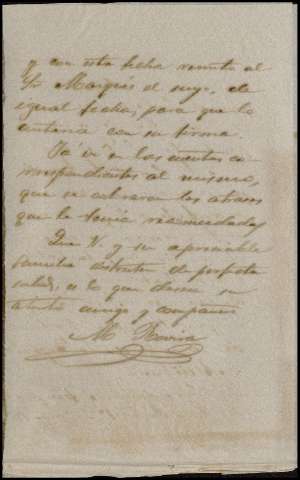 y con esta fecha remito al
Sr Marques el suyo, de
igual fecha, para que lo
autorice con su firma.
Ya vi en las cuentas co
rrespondientes al mismo,
que se activaran las obras
que le tenia recomendadas
Que V. y su apreciable
familia disfruten de perfecta
salud, es lo que desea su
atento amigo y compañero
M Rovira